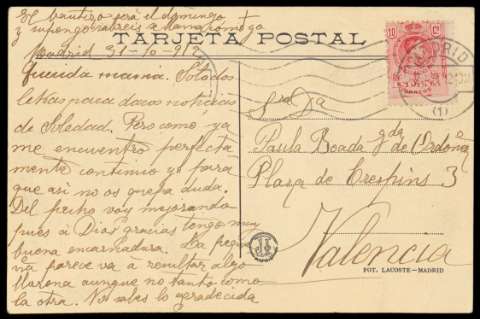 El bautizo será el domingo
y supongo sabreis se llama como yo
TARJETA POSTAL
Madrid 31-10-912
Querida mamá. Solo dos
letras para daros noticias
de Soledad. Pero como ya
me encuentro perfecta
mente continuo yo para
que asi no os quepa duda.
Del pecho voy mejorando
pues a Dios gracias tengo muy
buena encarnadura. La peque
ña parece va a resultar algo
llorona aunque no tanto como
la otra. No sabes lo agradecida
10 10
MADRID
(1)
Sra Da
Paula Boada gda de Ordoña
Plaza de Crespins 3
Valencia
FOT. LACOSTE-MADRID